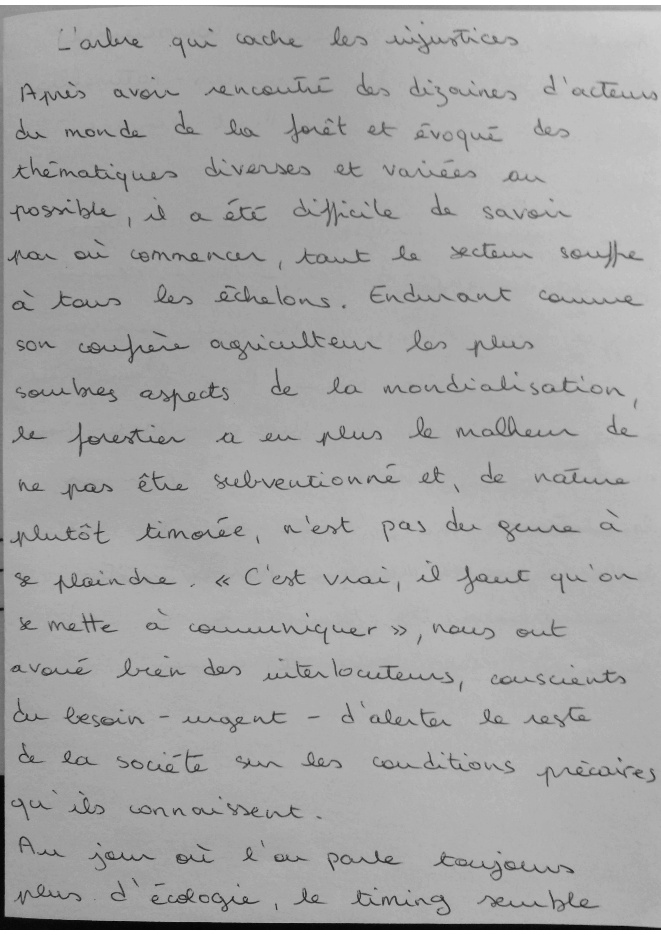 L'arbre qui cache les injustices
Après avoir rencontré des dizaines d'acteurs
du monde de la forêt et évoqué des
thématiques diverses et variées au
possible, il a été difficile de savoir
par où commencer, tant le secteur souffre
à tous les échelons. Endurant comme
son confrère agriculteur les plus
sombres aspects de la mondialisation,
le forestier a en plus le malheur de
ne pas être subventionné et, de nature
plutôt timorée, n'est pas du genre à
se plaindre. « C'est vrai, il faut qu'on
se mette à communiquer », nous ont
avoué bien des interlocuteurs, conscients
du besoin - urgent - d'alerter le reste
de la société sur les conditions précaires
qu'ils connaissent.
Au jour où l'on parle toujours
plus d'écologie, le timing semble